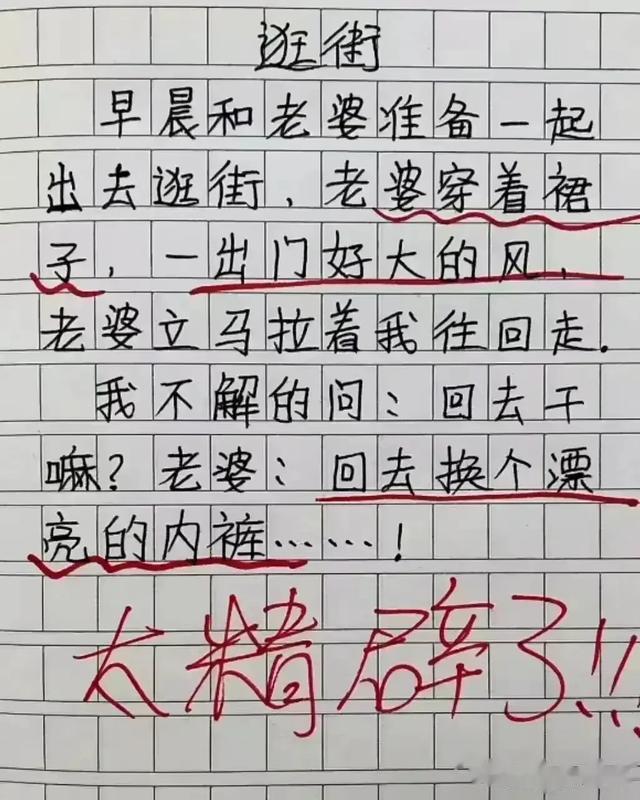 逛街
早晨和老婆准备一起
出去逛街，老婆穿着裙
子，一出门好大的风，
老婆立马拉着我往回走.
我不解的问：回去干
嘛？老婆：回去换个漂
亮的内裤……！
太精辟了!!!